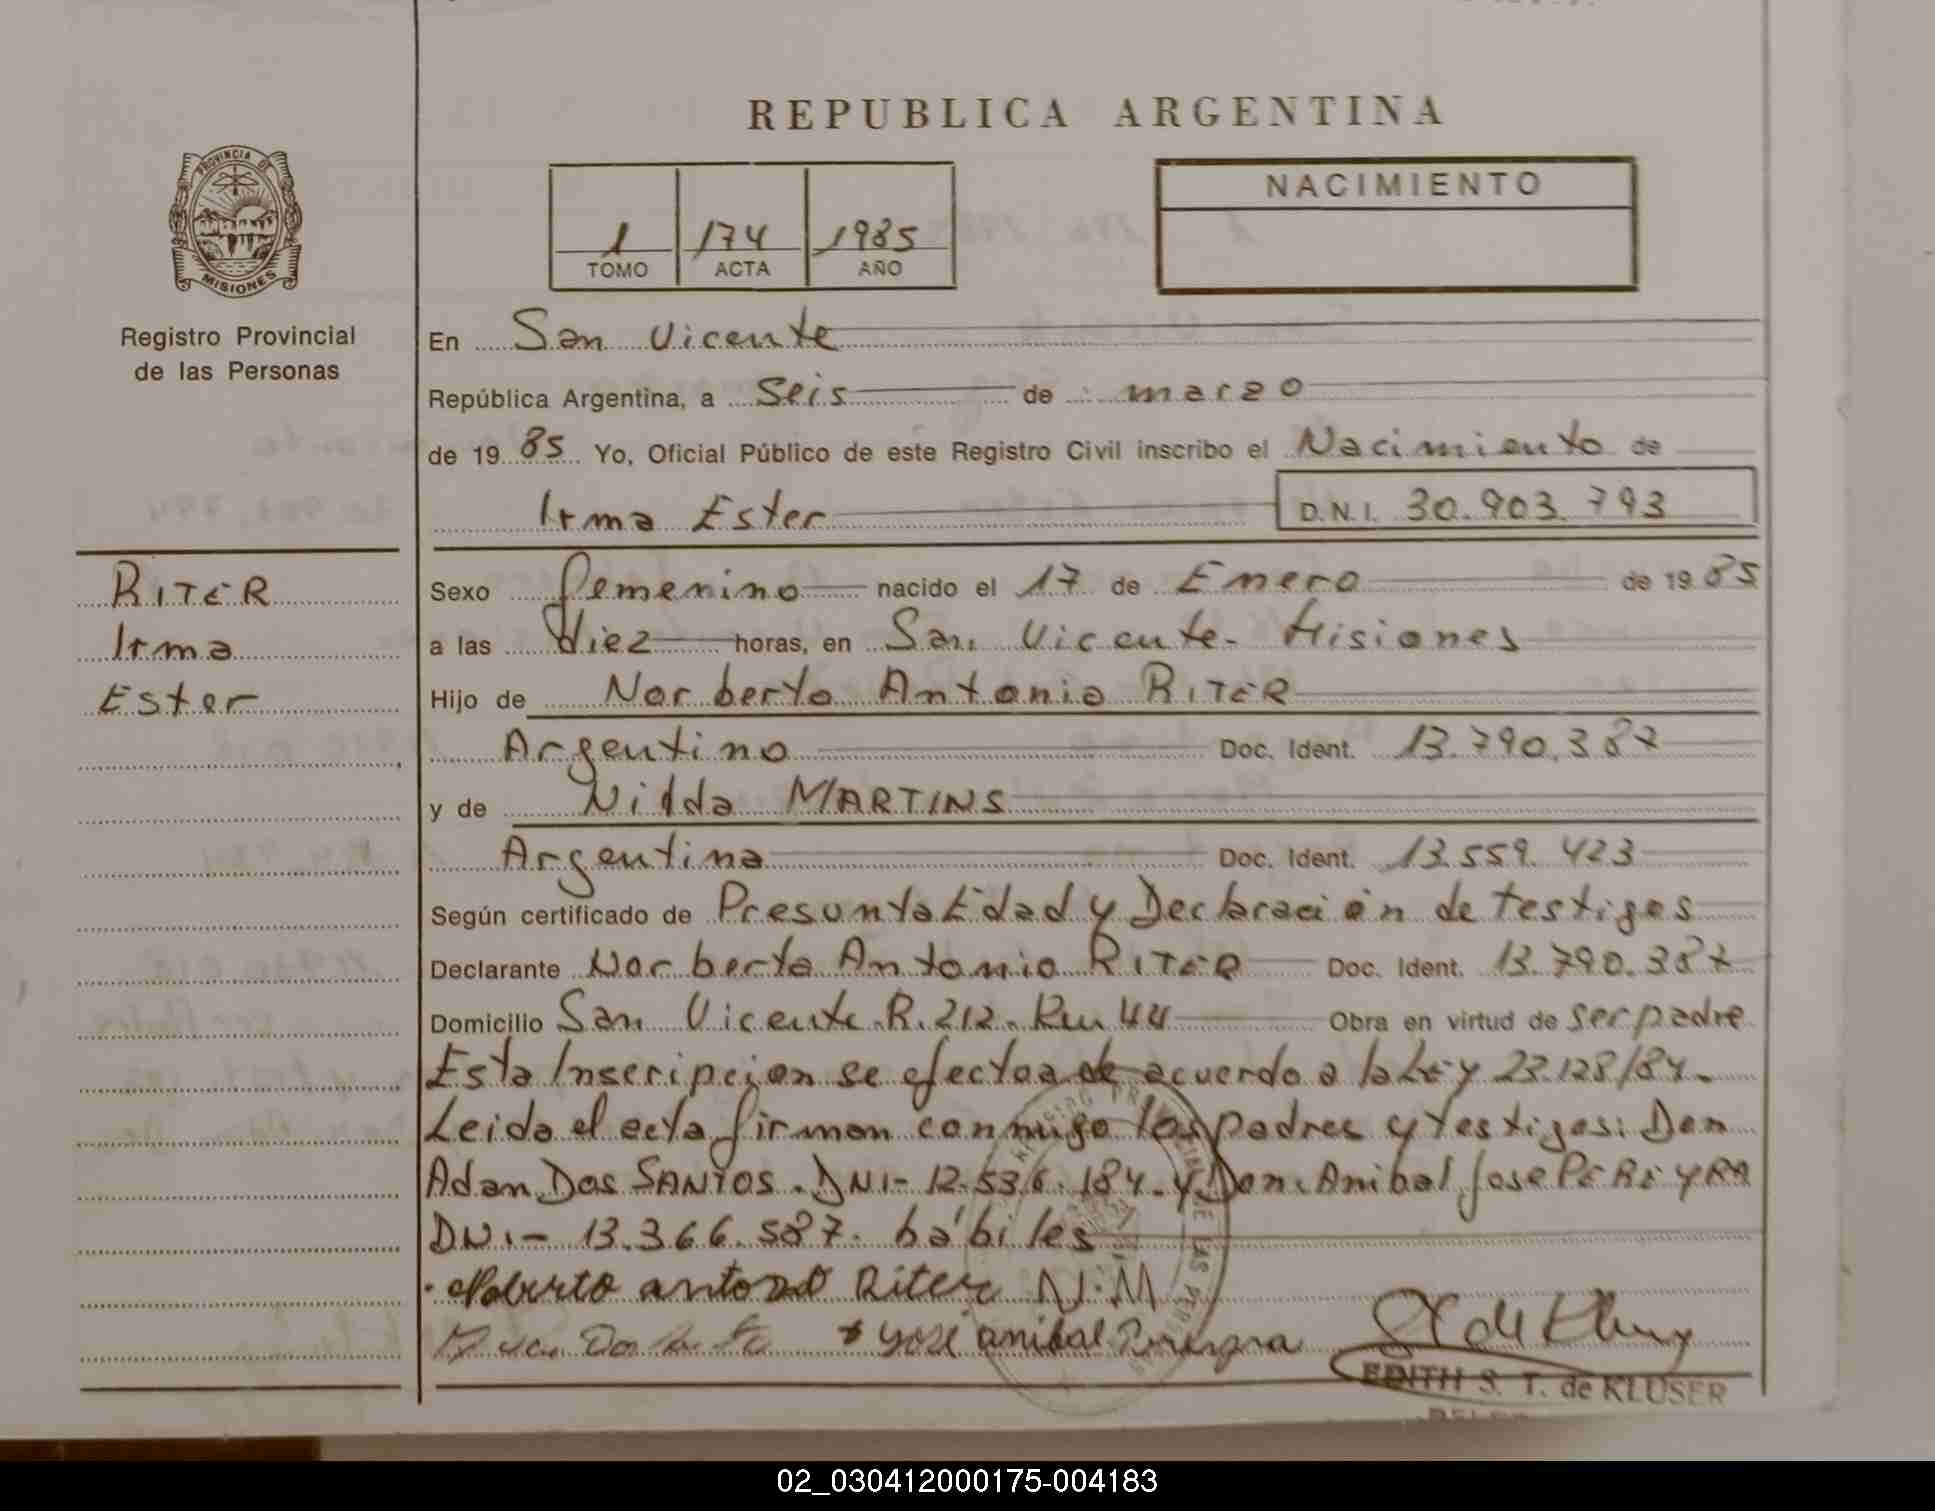 REPUBLICA ARGENTINA
PROVINCIA DE
MISIONES
Registro Provincial
de las Personas
1 174 1985
TOMO ACTA AÑO
NACIMIENTO
En San Vicente
República Argentina, a Seis de marzo
de 19 85 Yo, Oficial Público de este Registro Civil inscribo el Nacimiento de
Irma Ester D.N.I. 30.903.793
RITER
Irma
Ester
Sexo femenino nacido el 17 de Enero de 19 85
a las diez horas, en San Vicente - Misiones
Hijo de Norberto Antonio RITER
Argentino Doc. Ident. 13.790.387
y de Nilda MARTINS
Argentina Doc. Ident. 13.559.423
Según certificado de Presunta Edad y Declaración de testigos
Declarante Norberto Antonio RITER Doc. Ident. 13.790.387
Domicilio San Vicente. R. 212. Km 44 Obra en virtud de ser padre
Esta Inscripcion se efectaa de acuerdo a la Ley 23.128/84.
Leida el acta firman conmigo los padres y testigos: Don
Adan Dos SANTOS. DNI- 12.536.184. y Don. Anibal Jose PEREYRA
DNI- 13.366.587. hábiles
Riter N.M
José anibal
EDITH S. T. de KLUSER
02_030412000175-004183